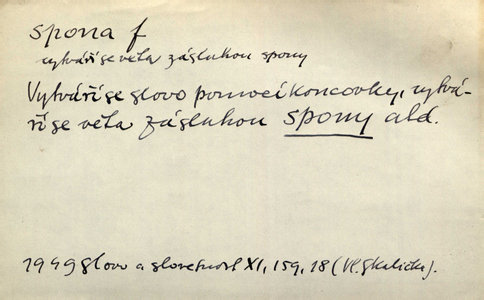 spona f
vytváří se věta zásluhou spony
Vytváří se slovo pomocí koncovky, vytvá-
ří se věta zásluhou spony atd.
1949 Slovo a slovesnost XI, 159, 18 (Vl. Skalička).